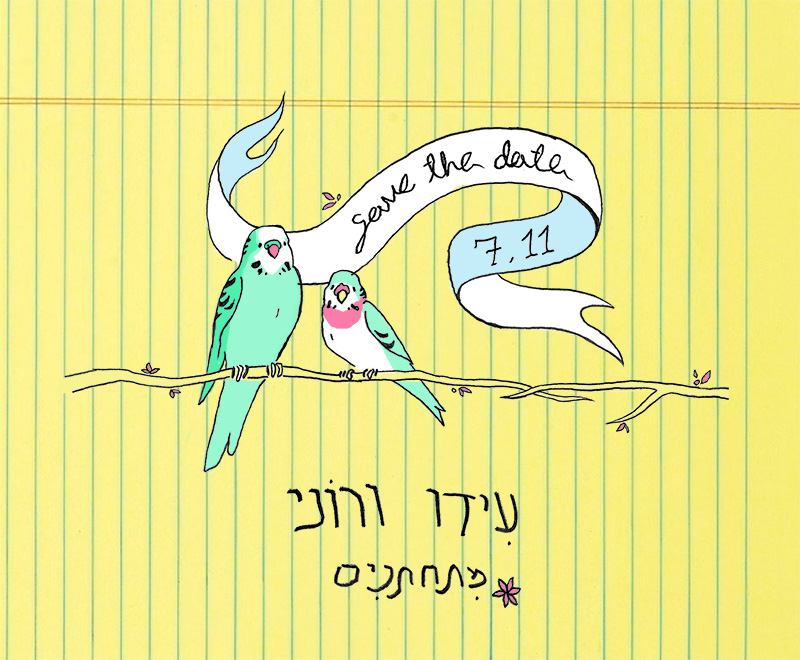 save the date
7.11
עִידוֹ ורוֹני
מִתחתנִים